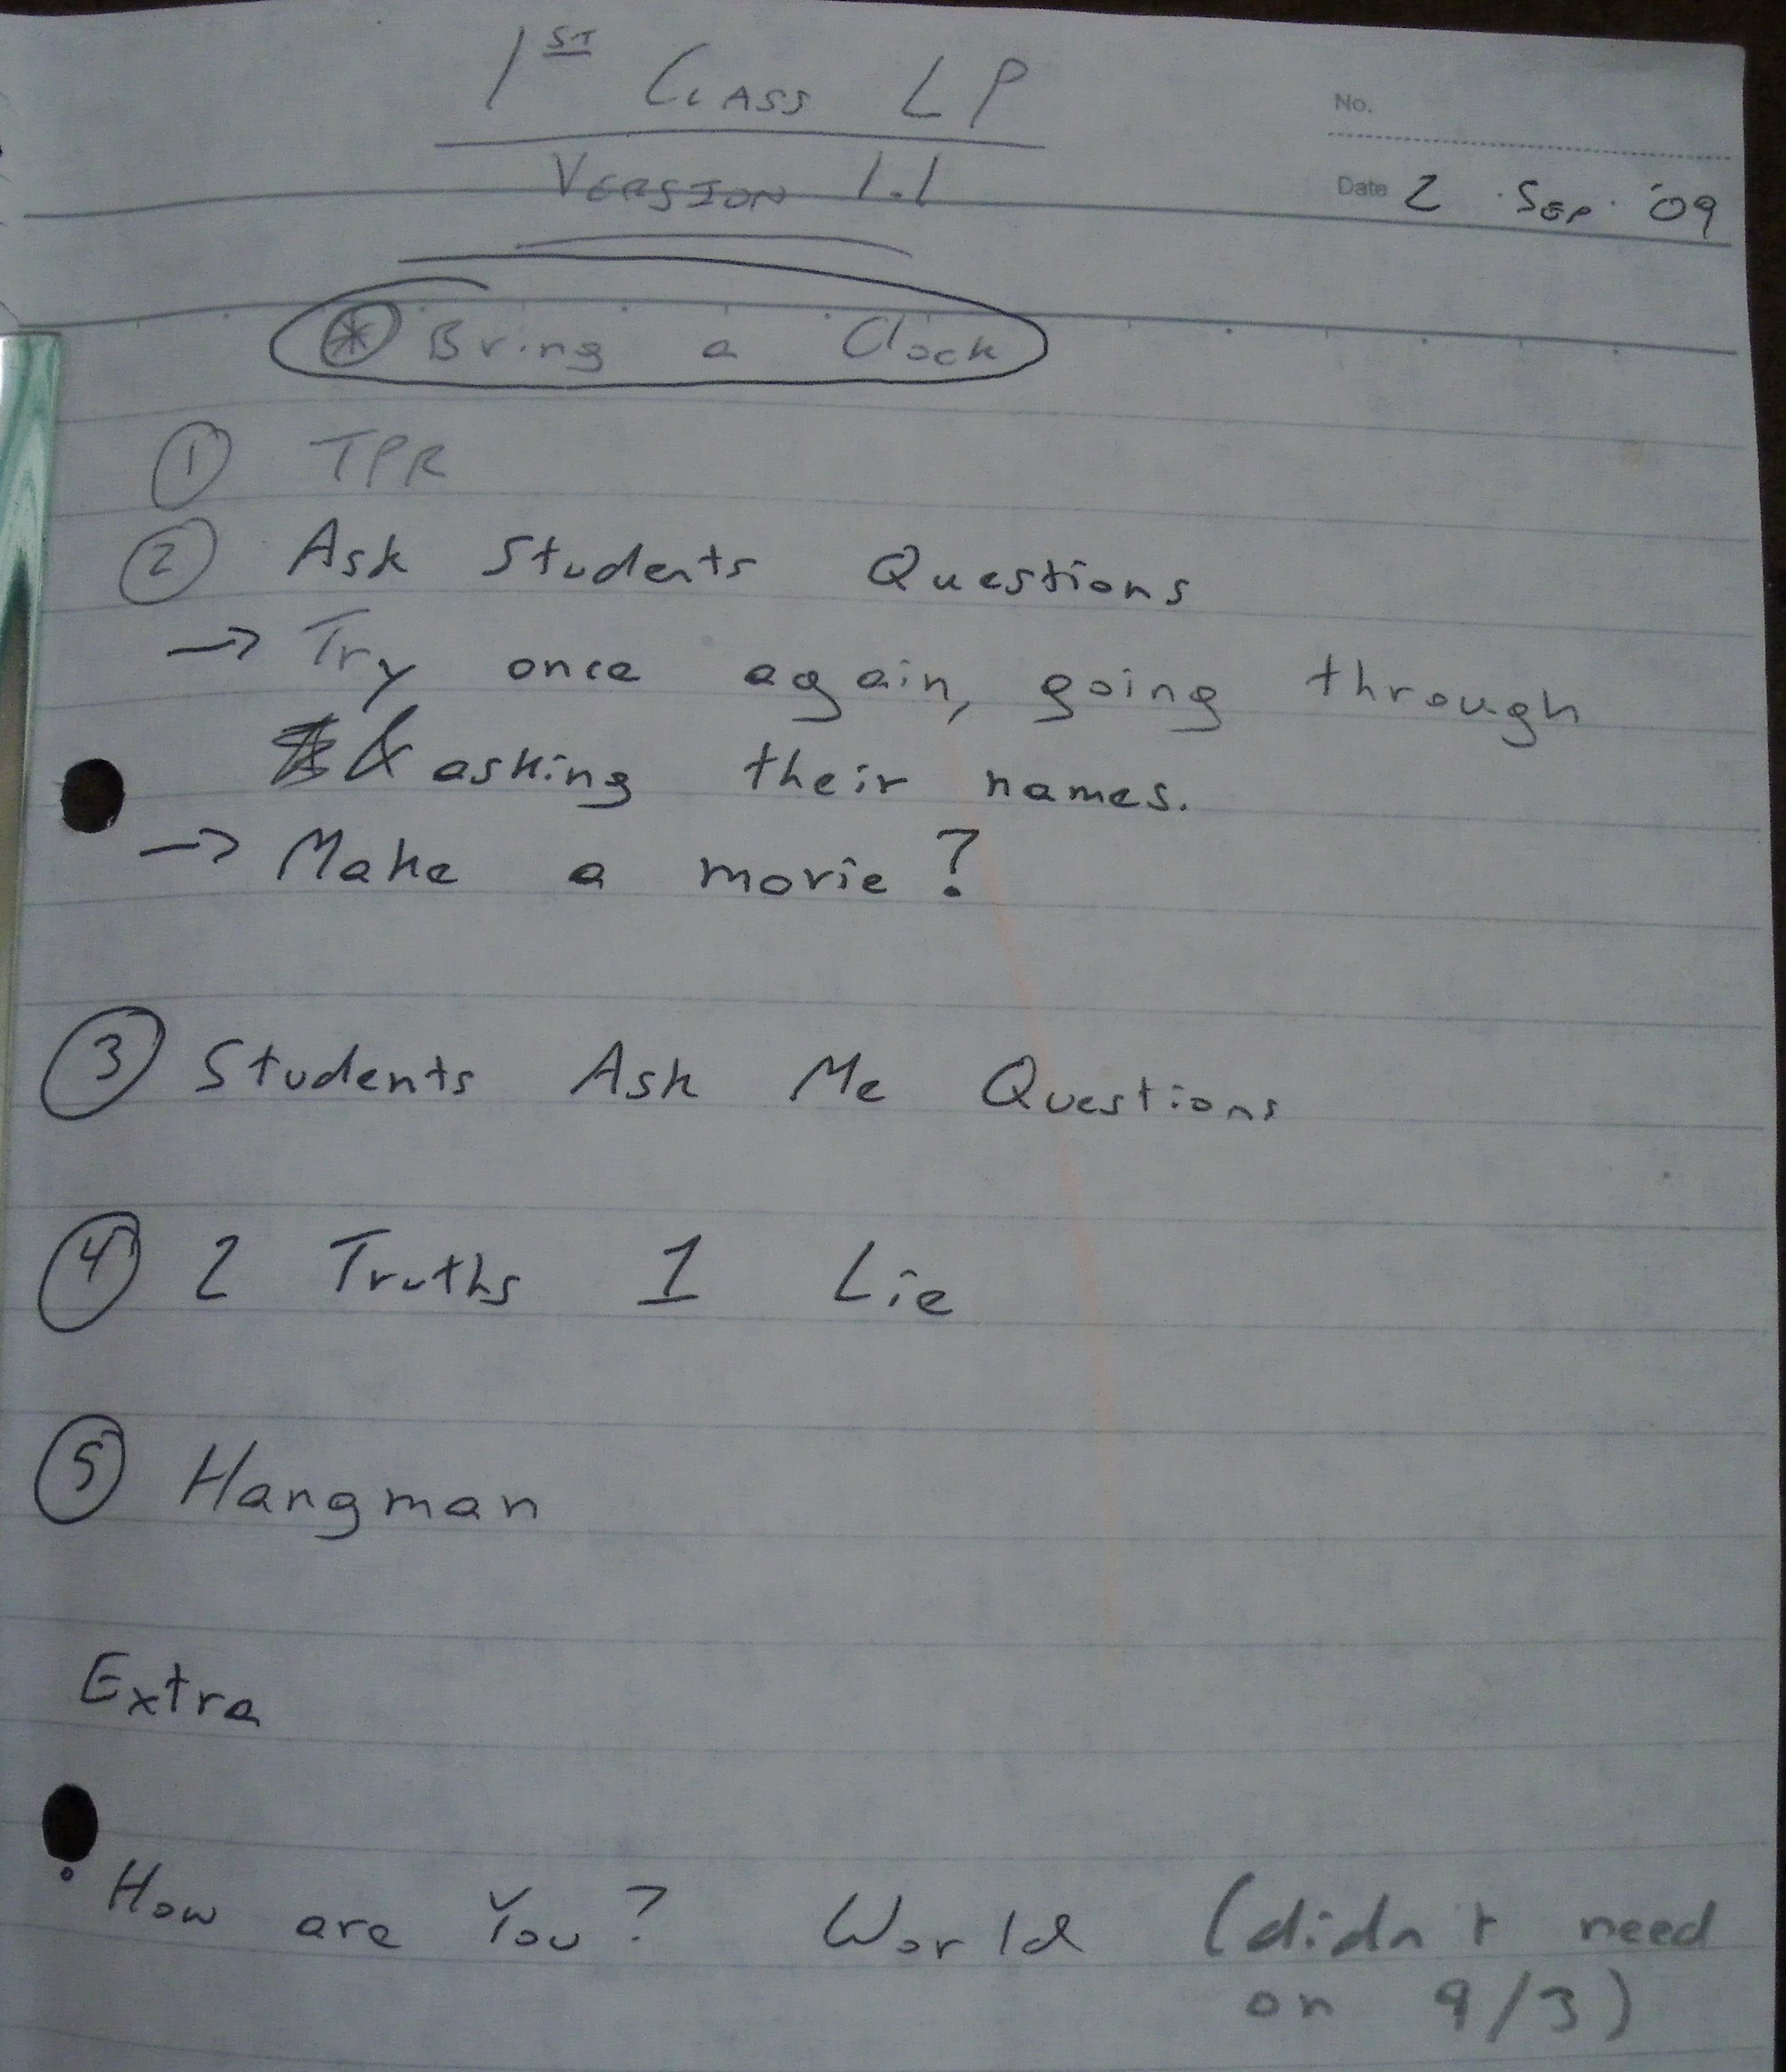 1ST CLASS LP
No.
VERSION 1.1
Date 2 Sep. '09
* Bring a Clock
1 TPR
2 Ask Students Questions
→ Try once again, going through
& asking their names.
→ Make a movie?
3 Students Ask Me Questions
4 2 Truths 1 Lie
5 Hangman
Extra
• How are You? World (didn't need
on 9/3)